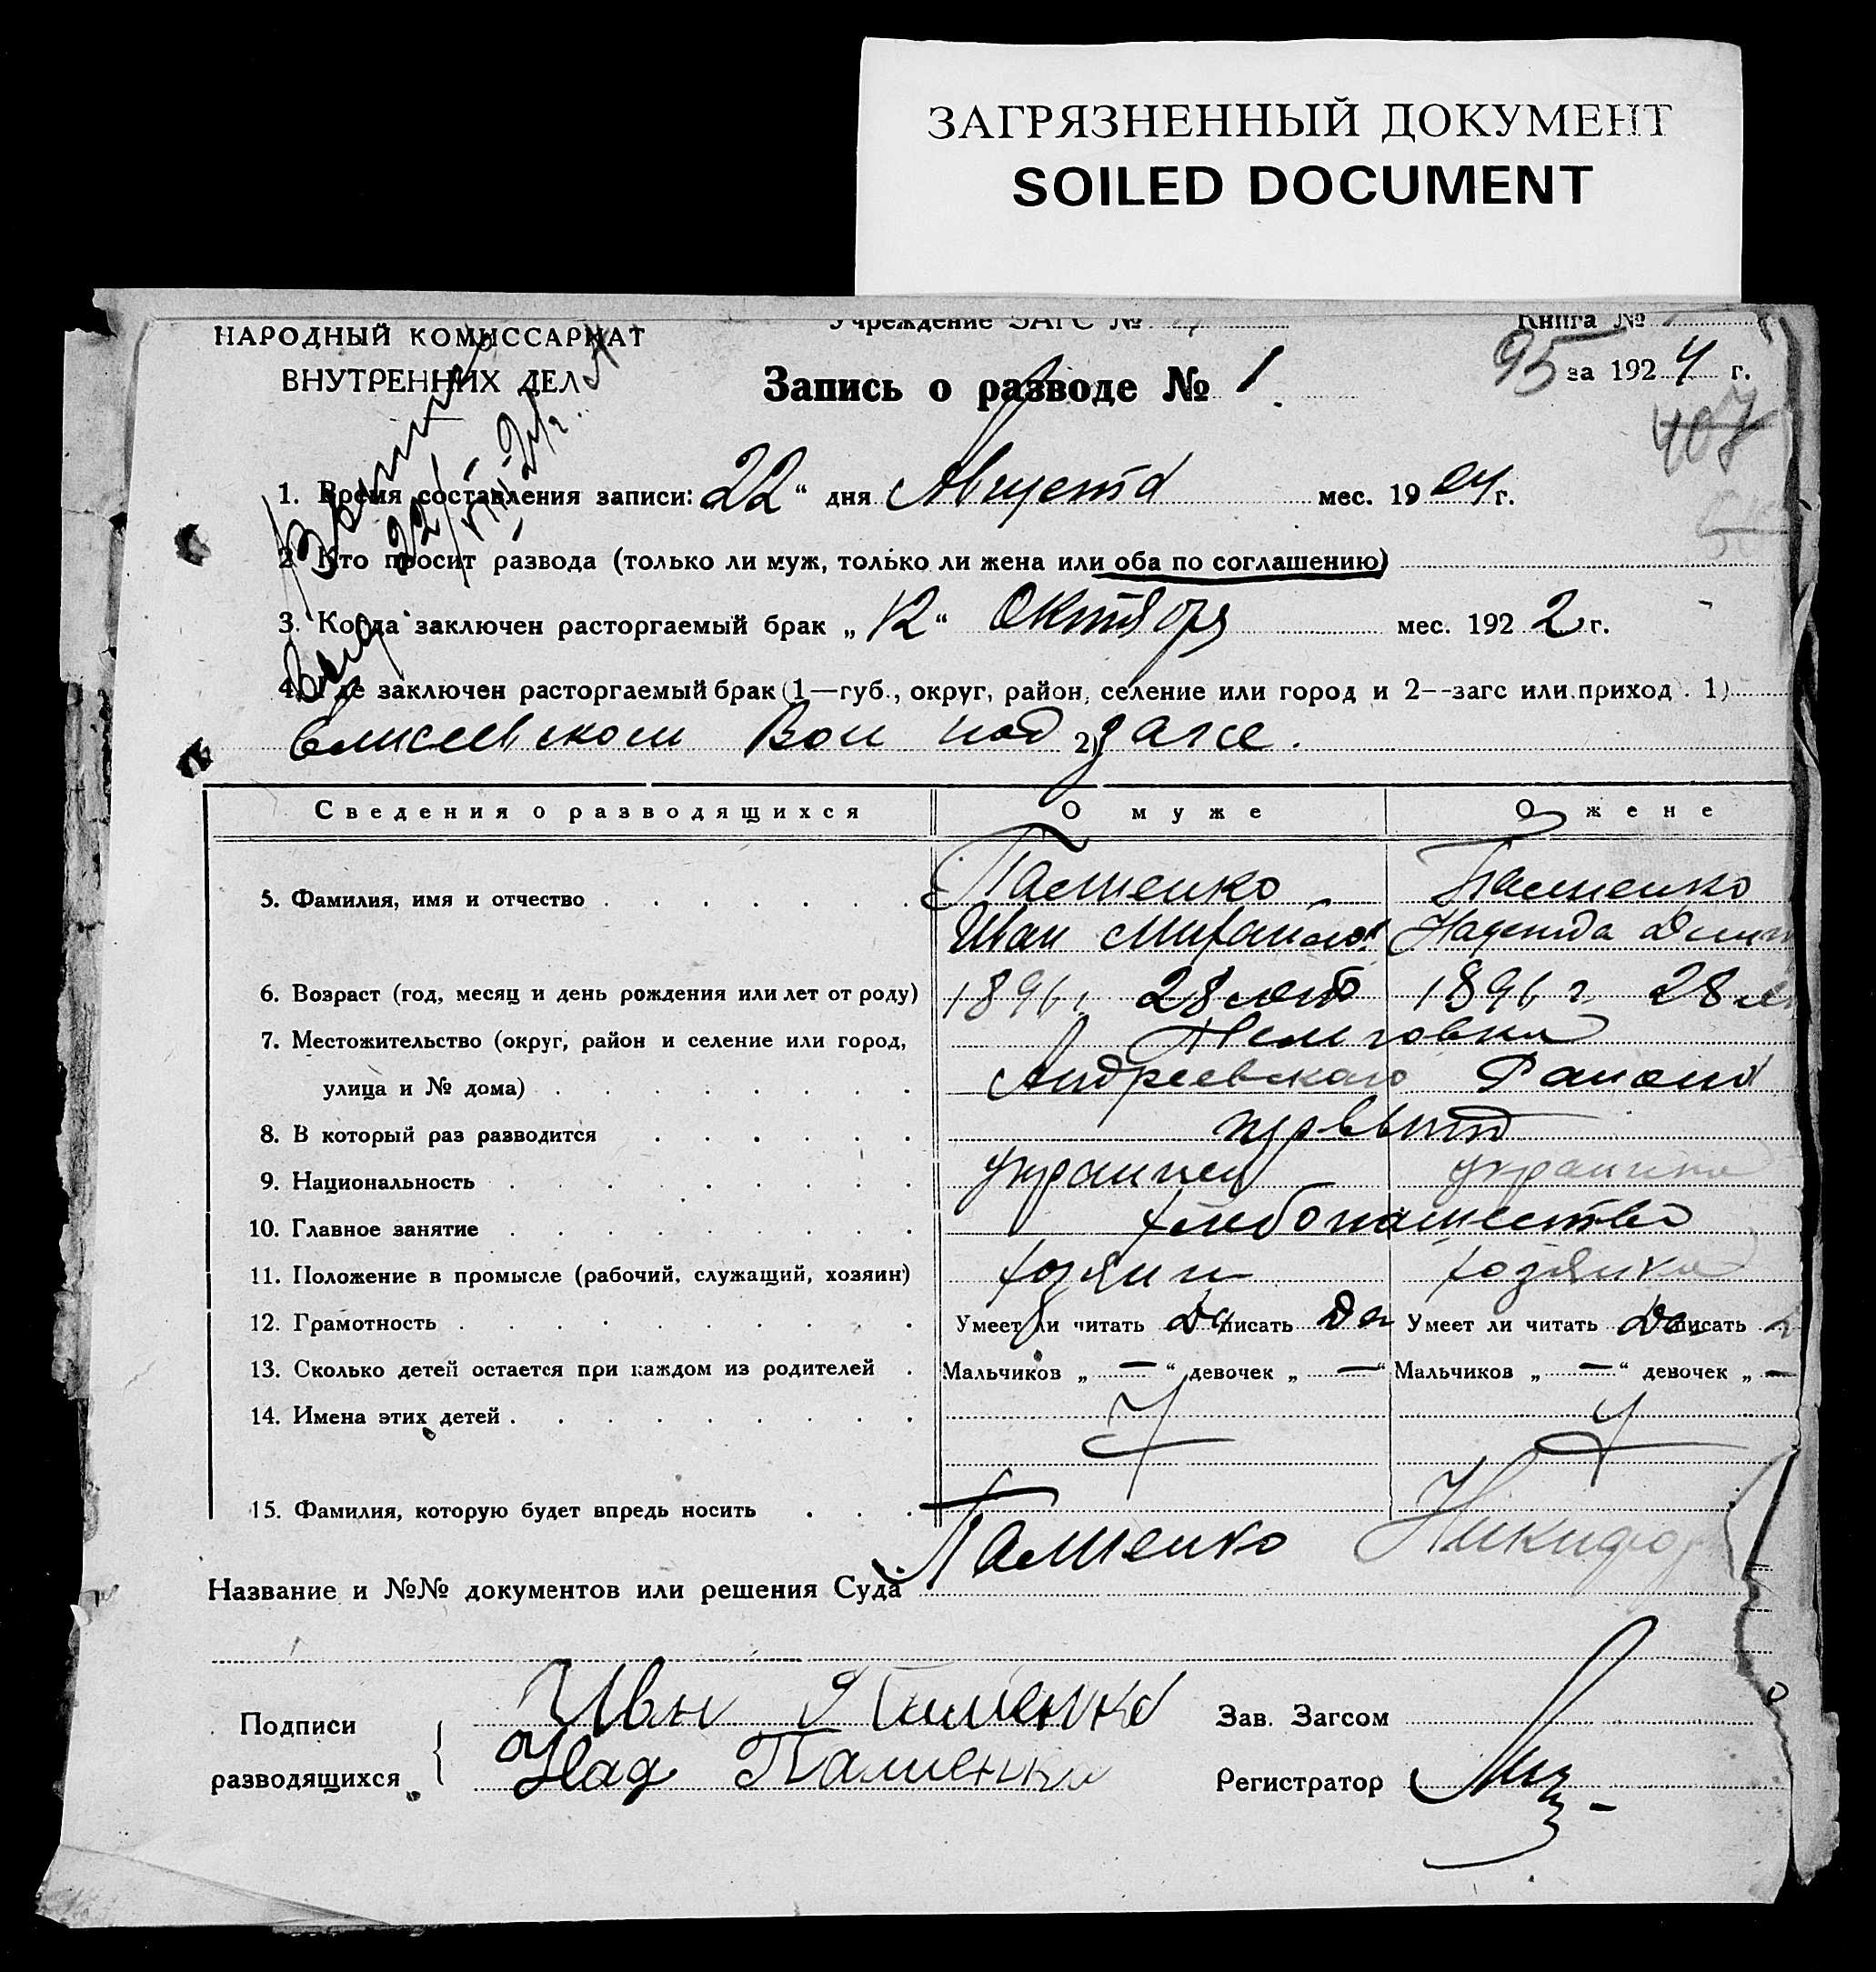 ЗАГРЯЗНЕННЫЙ ДОКУМЕНТ
SOILED DOCUMENT
НАРОДНЫЙ КОМИССАРИАТ
ВНУТРЕННИХ ДЕЛ
Учреждение ЗАГС №
Книга №
95 за 1924 г.
Запись о разводе № 1.
407
1. Время составления записи: 22 “ дня Августа мес. 19 24 г.
2. Кто просит развода (только ли муж, только ли жена или оба по соглашению)
3. Когда заключен расторгаемый брак „ 12 “ Октября мес. 192 2 г.
4. Где заключен расторгаемый брак (1—губ., округ, район, селение или город и 2—загс или приход. 1)
Елисеевском Вол под 2) загсе.
Сведения о разводящихся О муже О жене
5. Фамилия, имя и отчество Пащенко Пащенко
Иван Михайлов Надежда
6. Возраст (год, месяц и день рождения или лет от роду) 1896 г. 28 лет 1896 г. 28
7. Местожительство (округ, район и селение или город,
улица и № дома) Андреевского Района
8. В который раз разводится первый
9. Национальность украинец украинка
10. Главное занятие хлебопашество
11. Положение в промысле (рабочий, служащий, хозяин) хозяин хозяйка
12. Грамотность Умеет ли читать Да писать Да Умеет ли читать Да писать
13. Сколько детей остается при каждом из родителей Мальчиков „ — “ девочек „ — “ Мальчиков „ — “ девочек „ —
14. Имена этих детей
15. Фамилия, которую будет впредь носить Пащенко Никифор
Название и №№ документов или решения Суда
Подписи
разводящихся
Иван Пащенко
Над Пащенко
Зав. Загсом
Регистратор